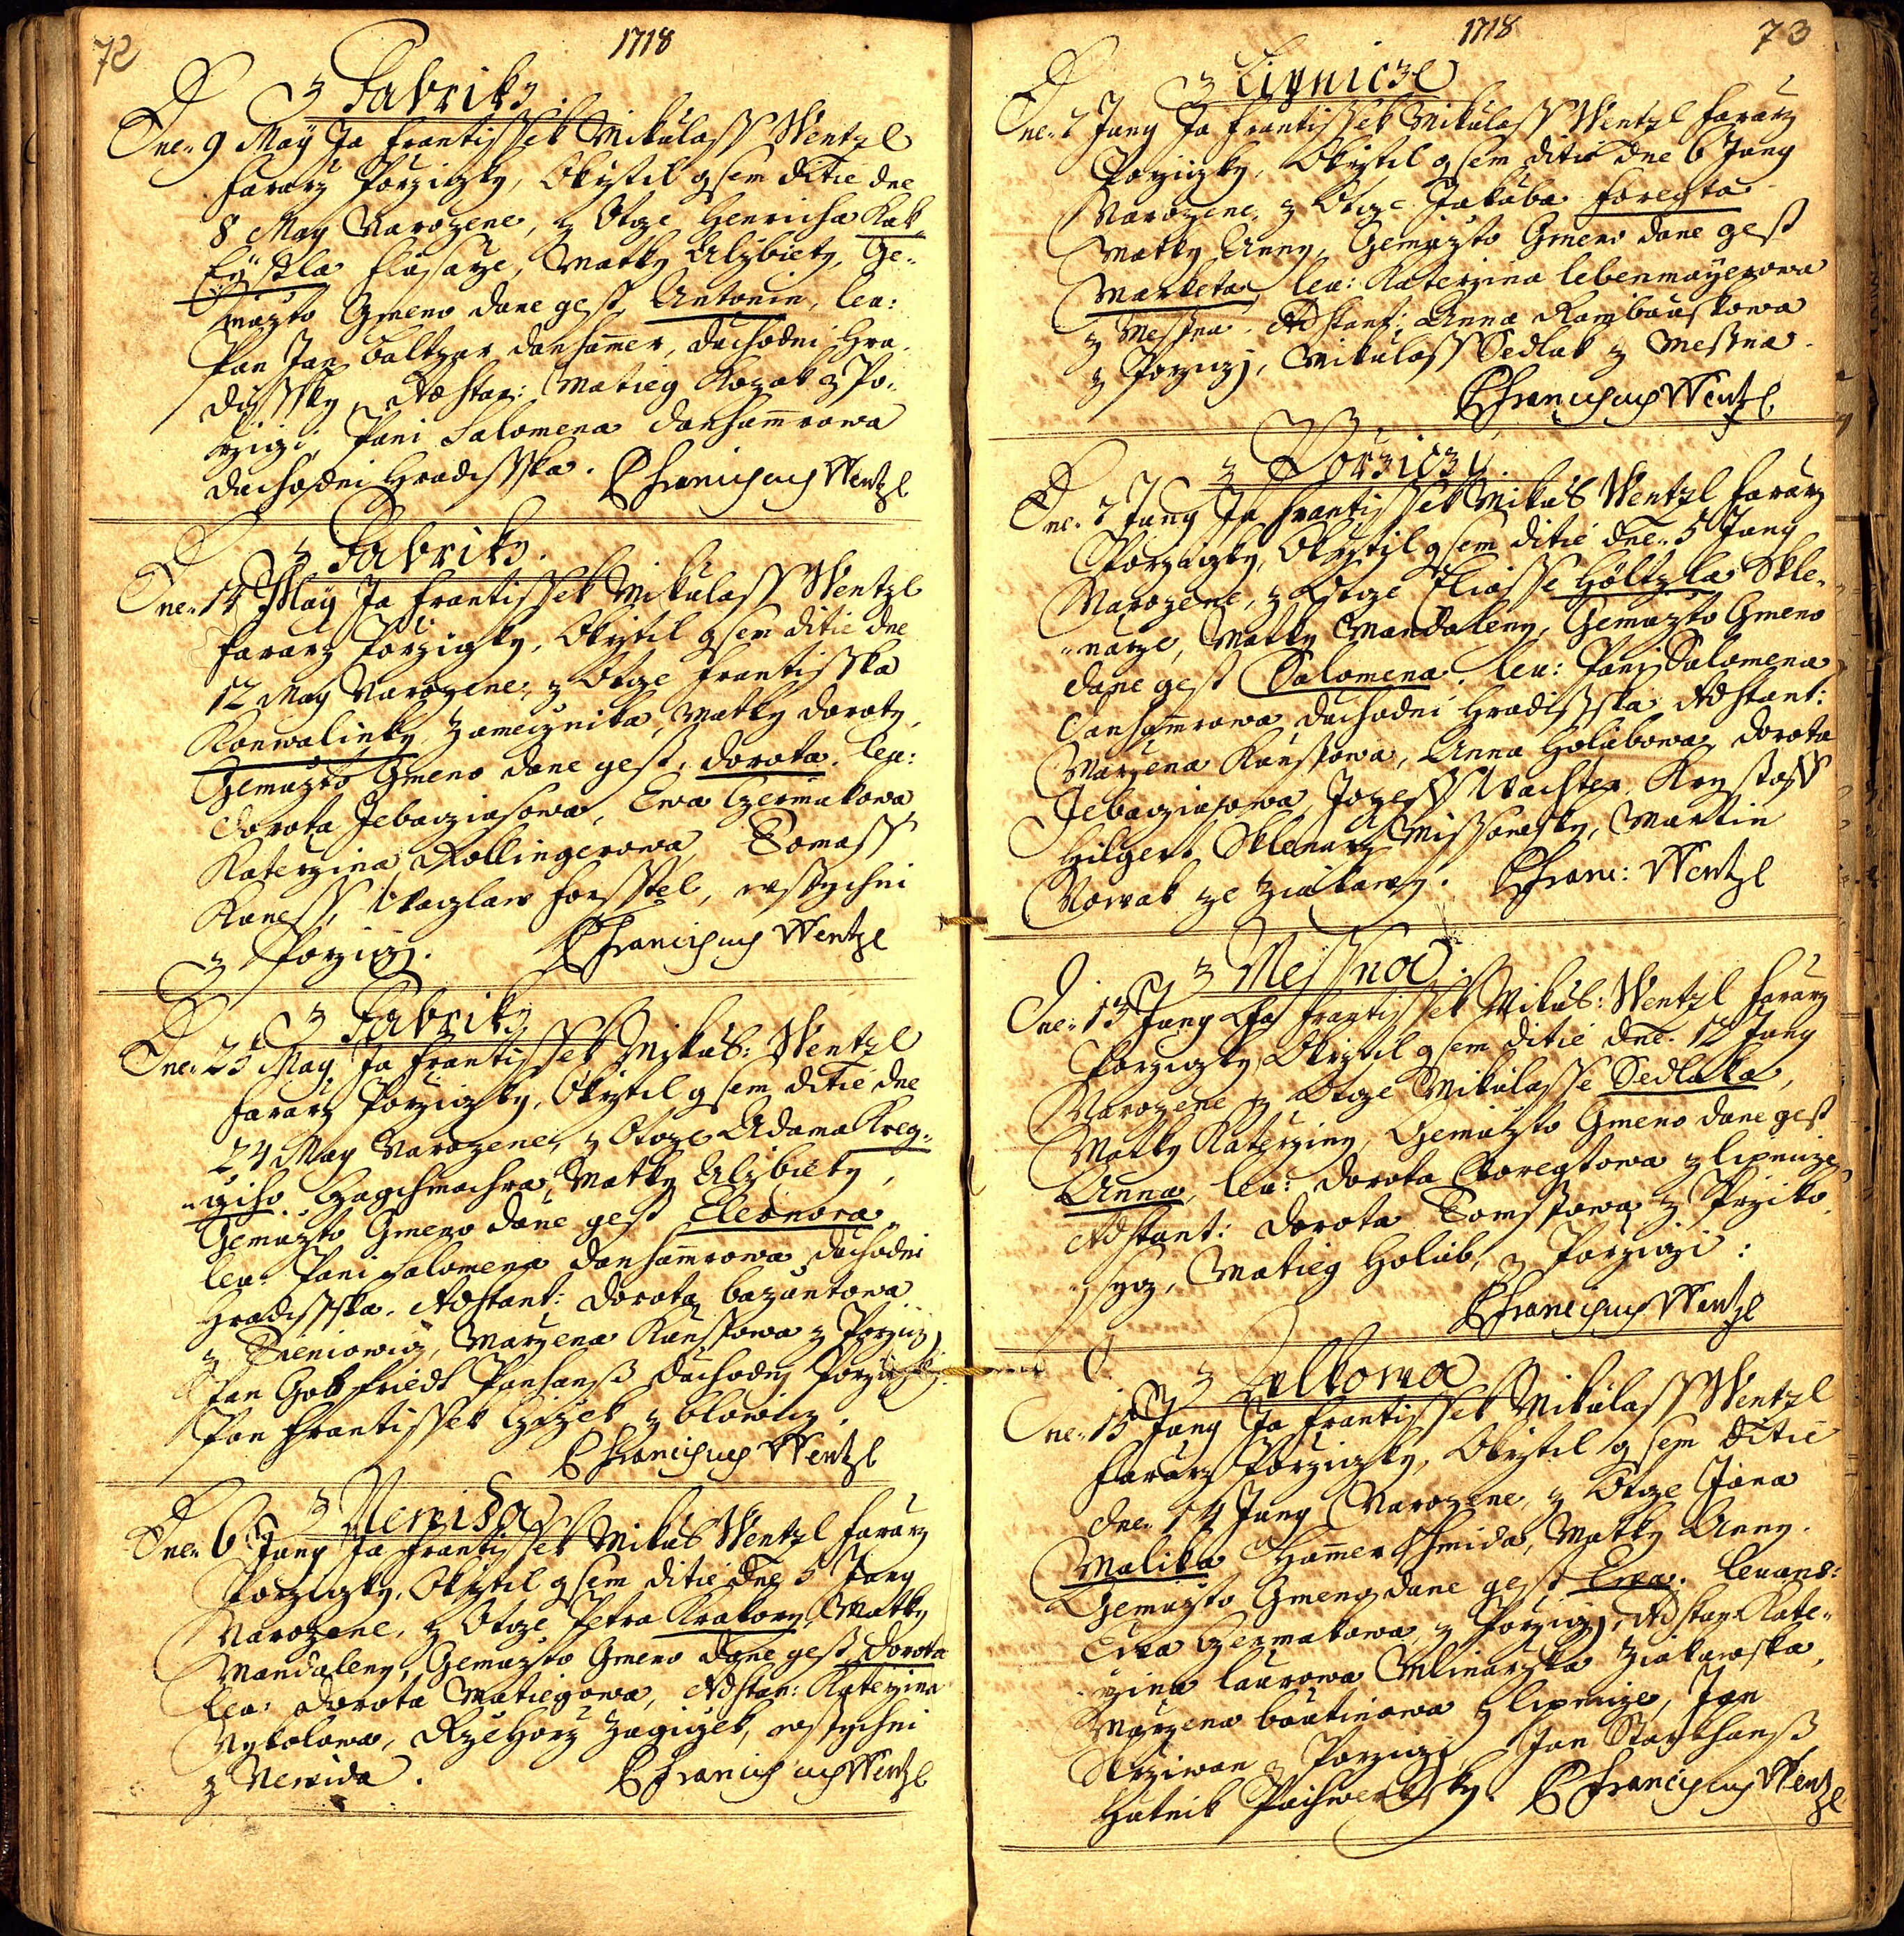 72
1718
z Fabriky
Dne 9 May Ja Frantissek Mikulass Wentzl
Fararz Porziczky, Okrztil gsem ditie dne
8 May Narozene, z Otcze Henricha Kak„
Matky Alzbiety, Ge„
muzto Gmeno dane gest Antonin, leu:
Pan Jan Baltzar Danhamer, duchodni Hra„
dissky, Adstan: Matieg Kozak z Po„
rziczi, Pani Salomena Danhamrowa
duchodni Hradisska. P Franciscus Wentzl
z Fabriky.
Dne 14 May Ja Frantissek Mikulass Wentzl
Fararz Porziczky, Okrztil gsem ditie dne
12 May Narozene, z Otcze Frantisska
Konwalinky Zamecznika, Matky Doroty,
Gemuzto Gmeno dane gest, Dorota. leu:
Dorota Ewa Czermakowa
Katerzina Rollingerowa, Tomass
Waczlaw Forsstel, wssychni
z Porziczj. P Franciscus Wentzl
z Fabriky
Dne 25 May Ja Frantissek Mikul: Wentzl
Fararz Porziczky, Okrztil gsem ditie dne
24 May Narozene, z Otcze Adama Kreg„
„cziho Czagchmachra, Matky Alzbiety,
Gemuzto Gmeno dane gest Eleonora
leu: Pani Salomena Danhamrowa duchodni
Hradisska. Adstant: Dorota Bazantowa
z Marzena Kunssowa z Porzicz
Pan Gottfriedt Panhanß duchodnj Porziczky
Pan Frantissek Czizek z Blowicz.
P Franciscus Wentzl
z Newida
Dne 6 Juny Ja Frantissek Mikul Wentzl Fararz
Porziczky, Okrztil gsem ditie dne 5 Juny
Narozene, z Otcze Petra Krakory Matky
Mandaleny, Gemuzto Gmeno dane gest Dorota
leu: Dorota Matiegowa, Adstan: Katerzina
Nykolowa, Rzehorz Zagiczek, wssychni
z Newida. P Franciscus Wentzl
1718
73
z Lipnicze
Dne 7 Juny Ja Frantissek Mikulass Wentzl Fararz
Porziczky, Okrztil gsem ditie dne 6 Juny
Narozene, z Otcze Jakuba Foregta
Matky Anny, Gemuzto Gmeno dane gest
Marketa, leu: Katerzina Lebenmayerowa
z Messna. Adstant: Anna
z Porziczj, Mikulass Sedlak z Messna.
P Franciscus Wentzl
z Porziczi
Dne 7 Juny Ja Frantissek Mikul Wentzl Fararz
Porziczky, Okrztil gsem ditie dne 5 Juny
Narozene, z Otcze Eliasse Höltzla Skle„
„narze, Matky Mandaleny, Gemuzto Gmeno
dane gest Salomena. leu: Pani Salomena
Danhamrowa duchodni Hradisska Adstant:
Marzena Kunssowa, Anna Holubowa, Dorota
Jozeff Wachter, Krystoff
Hilgert Sklenarz Missowsky, Martin
Nowak ze Ziakawy. P Franc: Wentzl
z Messna
Dne 13 Juny Ja Frantissek Mikul: Wentzl Fararz
Porziczky Okrztil gsem ditie dne 12 Juny
Narozene z Otcze Mikulasse Sedlaka,
Matky Katerziny, Gemuzto Gmeno dane gest
Anna, leu: Dorota Foregtowa z Lipnicze
Adstant: Dorota Tomssowa z Prziko„
„sycz, Matieg Holub, z Porziczi:
P Franciscus Wentzl
z Zelkowa
Dne 15 Juny Ja Frantissek Mikulass Wentzl
Fararz Porziczky, Okrztil gsem ditie
dne 14 Juny Narozene, z Otcze Jana
Malika Hammerschmida, Matky Anny.
Gemuzto Gmeno dane gest Ewa. leuans:
Ewa Czermakowa z Porziczj, Adstan Kate„
„rzina Laurowa Mlinarzka Ziakawska,
Marzena z Lipnicze, Jan
Skrziwan z Porziczj, Jan Starkhanß
Hutnik P Franciscus Wentzl